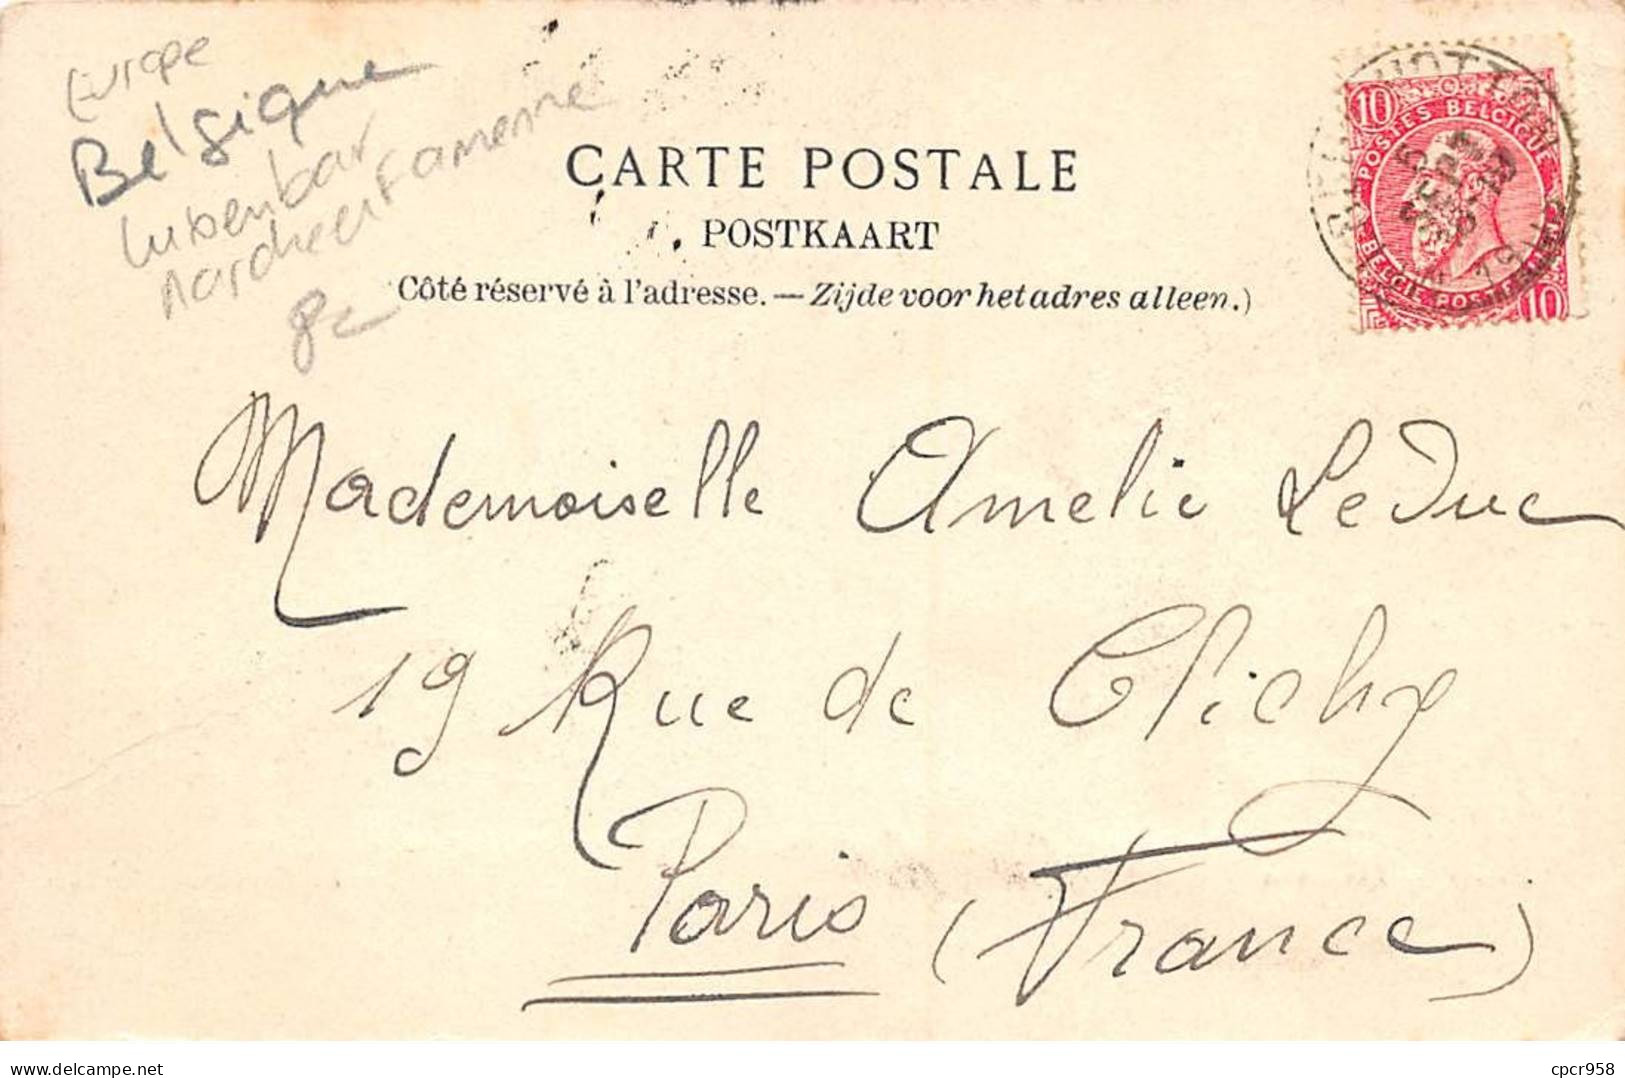 Europe
Belgique
CARTE POSTALE
POSTKAART
Côté réservé à l'adresse. — Zijde voor het adres alleen.)
10
POSTES BELGIQUE
BELGIE POSTERIJEN
10
HOTTON
5
SEPT
Mademoiselle Amelie LeDuc
19 Rue de Clichy
Paris (France)
delcampe.net
cpcr958